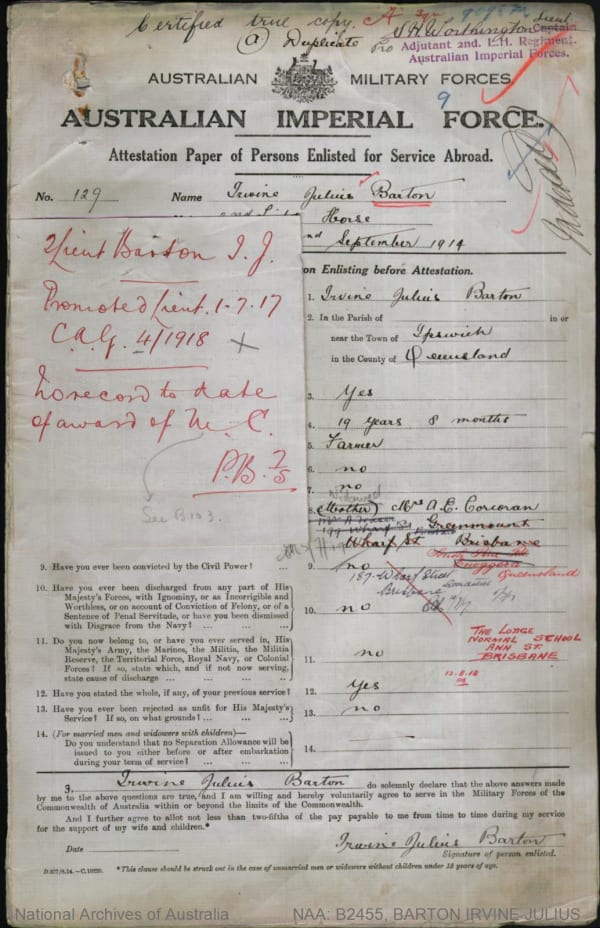 Certified true copy.
(a) Duplicate
S H Worthington Lieut
Adjutant 2nd. L.H. Regiment.
Australian Imperial Forces.
AUSTRALIAN MILITARY FORCES.
9
AUSTRALIAN IMPERIAL FORCE.
Attestation Paper of Persons Enlisted for Service Abroad.
No. 129 Name Irvine Julius Barton
Horse
September 1914
2/Lieut Barton I. J.
Promoted Lieut. 1-7-17
C.A.G. 4/1918
X
No record to date
of award of M.C.
See B103.
on Enlisting before Attestation.
1. Irvine Julius Barton
2. In the Parish of in or
near the Town of Ipswich
in the County of Queensland
3. Yes
4. 19 years 8 months
5. Farmer
6. no
7. no
Widowed
8. (Mother) Mrs A. E. Corcoran
Greenmount
Wharf St Brisbane
9. Have you ever been convicted by the Civil Power? ... 9. no
187 Wharf Street
Brisbane
Queensland
10. Have you ever been discharged from any part of His
Majesty's Forces, with Ignominy, or as Incorrigible and
Worthless, or on account of Conviction of Felony, or of a
Sentence of Penal Servitude, or have you been dismissed
with Disgrace from the Navy? ... ... ... 10. no
THE LODGE
NORMAL SCHOOL
ANN ST.
BRISBANE
12.8.18
11. Do you now belong to, or have you ever served in, His
Majesty's Army, the Marines, the Militia, the Militia
Reserve, the Territorial Force, Royal Navy, or Colonial
Forces? If so, state which, and if not now serving,
state cause of discharge ... ... ... 11. no
12. Have you stated the whole, if any, of your previous service? 12. Yes
13. Have you ever been rejected as unfit for His Majesty's
Service? If so, on what grounds? ... ... 13. no
14. (For married men and widowers with children)—
Do you understand that no Separation Allowance will be
issued to you either before or after embarkation
during your term of service? ... ... ... 14.
I, Irvine Julius Barton do solemnly declare that the above answers made
by me to the above questions are true, and I am willing and hereby voluntarily agree to serve in the Military Forces of the
Commonwealth of Australia within or beyond the limits of the Commonwealth.
And I further agree to allot not less than two-fifths of the pay payable to me from time to time during my service
for the support of my wife and children.*
Irvine Julius Barton
Date
Signature of person enlisted.
*This clause should be struck out in the case of unmarried men or widowers without children under 18 years of age.
National Archives of Australia
NAA: B2455, BARTON IRVINE JULIUS